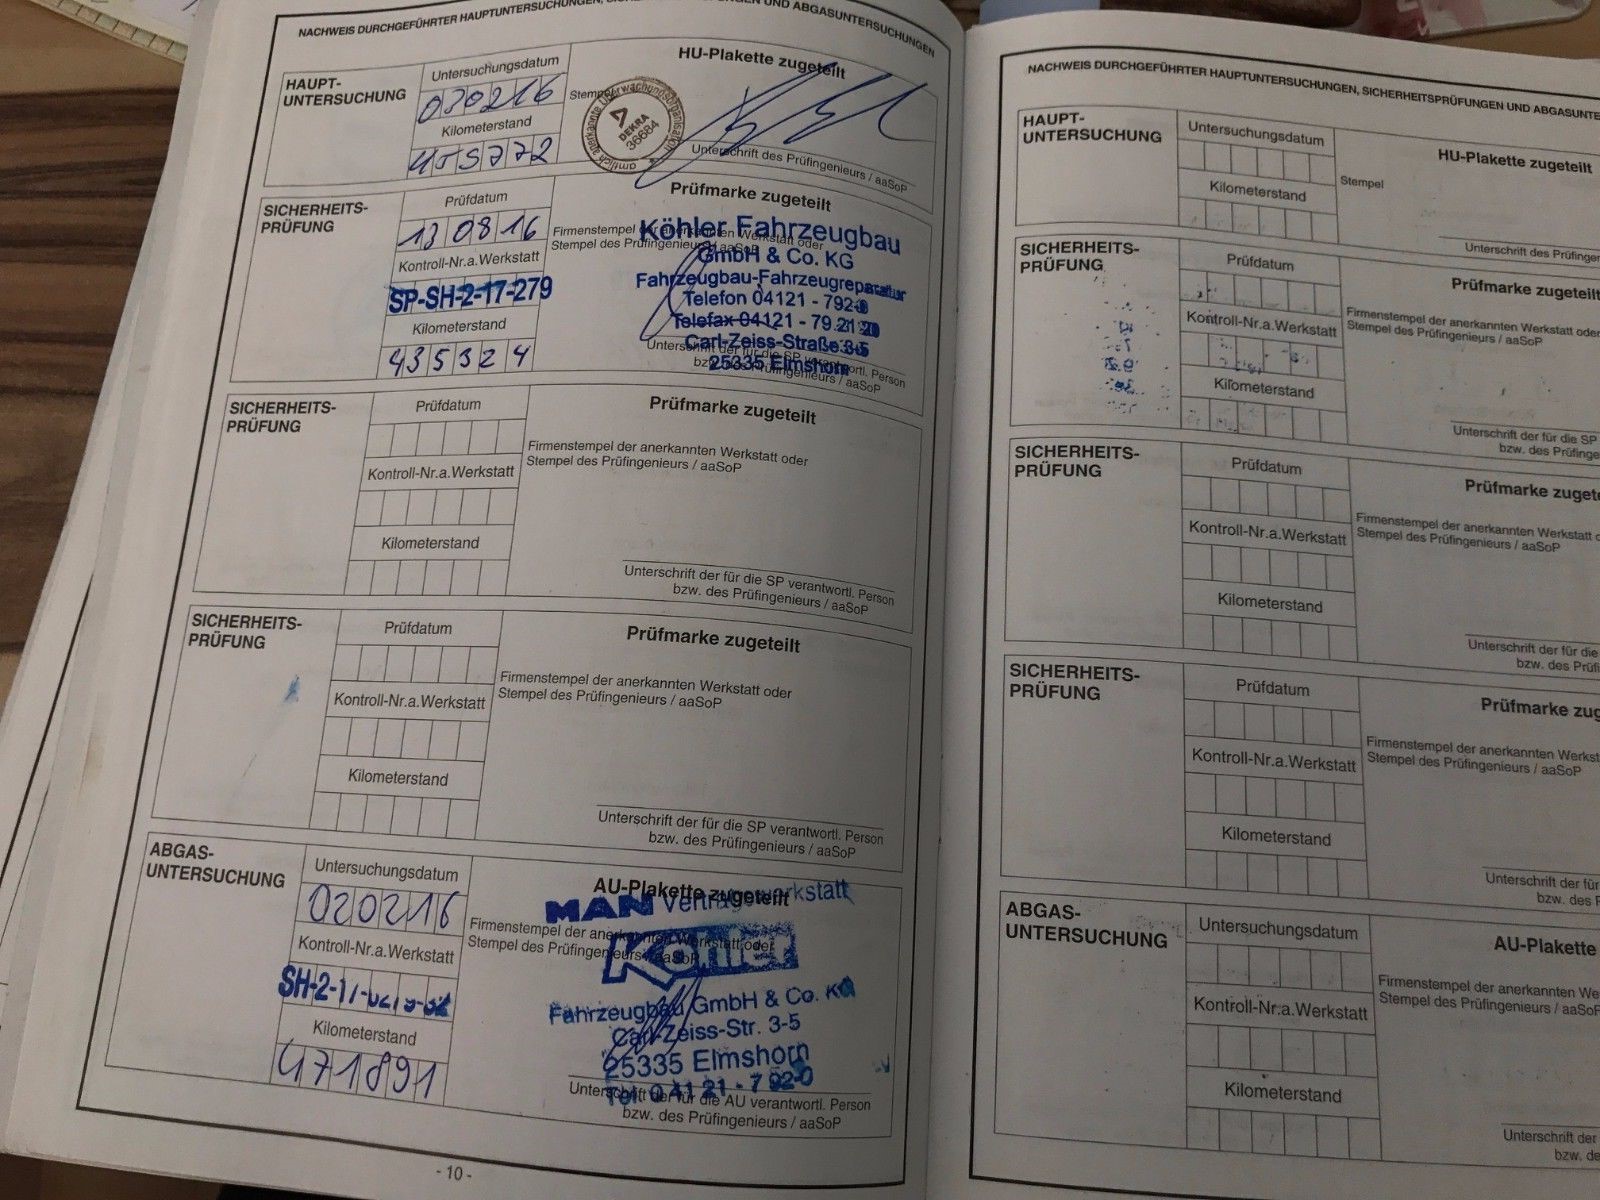 NACHWEIS DURCHGEFÜHRTER HAUPTUNTERSUCHUNGEN, UND ABGASUNTERSUCHUNGEN
HAUPT-
UNTERSUCHUNG
Untersuchungsdatum
Kilometerstand
HU-Plakette zugeteilt
Stempel
amtlich anerkannte Überwachungsorganisation
DEKRA
36684
Unterschrift des Prüfingenieurs / aaSoP
SICHERHEITS-
PRÜFUNG
Prüfdatum
130816
Kontroll-Nr.a.Werkstatt
SP-SH-2-17-279
Kilometerstand
435324
Prüfmarke zugeteilt
Firmenstempel der anerkannten Werkstatt oder
Stempel des Prüfingenieurs / aaSoP
Köhler Fahrzeugbau
GmbH & Co. KG
Fahrzeugbau-Fahrzeugreparatur
Telefon 04121 - 792-0
Telefax 04121 - 79 21 20
Carl-Zeiss-Straße 3-5
25335 Elmshorn
Unterschrift der für die SP verantwortl. Person
bzw. des Prüfingenieurs / aaSoP
SICHERHEITS-
PRÜFUNG
Prüfdatum
Kontroll-Nr.a.Werkstatt
Kilometerstand
Prüfmarke zugeteilt
Firmenstempel der anerkannten Werkstatt oder
Stempel des Prüfingenieurs / aaSoP
Unterschrift der für die SP verantwortl. Person
bzw. des Prüfingenieurs / aaSoP
SICHERHEITS-
PRÜFUNG
Prüfdatum
Kontroll-Nr.a.Werkstatt
Kilometerstand
Prüfmarke zugeteilt
Firmenstempel der anerkannten Werkstatt oder
Stempel des Prüfingenieurs / aaSoP
Unterschrift der für die SP verantwortl. Person
bzw. des Prüfingenieurs / aaSoP
ABGAS-
UNTERSUCHUNG
Untersuchungsdatum
020216
Kontroll-Nr.a.Werkstatt
Kilometerstand
471891
AU-Plakette zugeteilt
MAN Vertragswerkstatt
Firmenstempel der anerkannten Werkstatt oder
Stempel des Prüfingenieurs / aaSoP
Köhler
Fahrzeugbau GmbH & Co. KG
Carl-Zeiss-Str. 3-5
25335 Elmshorn
Tel. 0 41 21 - 7 92-0
Unterschrift der für die AU verantwortl. Person
bzw. des Prüfingenieurs / aaSoP
- 10 -
NACHWEIS DURCHGEFÜHRTER HAUPTUNTERSUCHUNGEN, SICHERHEITSPRÜFUNGEN UND ABGASUNTE
HAUPT-
UNTERSUCHUNG
Untersuchungsdatum
Kilometerstand
HU-Plakette zugeteilt
Stempel
Unterschrift des Prüfinge
SICHERHEITS-
PRÜFUNG
Prüfdatum
Kontroll-Nr.a.Werkstatt
Kilometerstand
Prüfmarke zugeteilt
Firmenstempel der anerkannten Werkstatt oder
Stempel des Prüfingenieurs / aaSoP
Unterschrift der für die SP
bzw. des Prüfinge
SICHERHEITS-
PRÜFUNG
Prüfdatum
Kontroll-Nr.a.Werkstatt
Kilometerstand
Prüfmarke zugete
Firmenstempel der anerkannten Werkstatt o
Stempel des Prüfingenieurs / aaSoP
Unterschrift der für die
bzw. des Prüfi
SICHERHEITS-
PRÜFUNG
Prüfdatum
Kontroll-Nr.a.Werkstatt
Kilometerstand
Prüfmarke zug
Firmenstempel der anerkannten Werkst
Stempel des Prüfingenieurs / aaSoP
Unterschrift der für
bzw. des P
ABGAS-
UNTERSUCHUNG
Untersuchungsdatum
Kontroll-Nr.a.Werkstatt
Kilometerstand
AU-Plakette
Firmenstempel der anerkannten We
Stempel des Prüfingenieurs / aaSoP
Unterschrift der
bzw. de